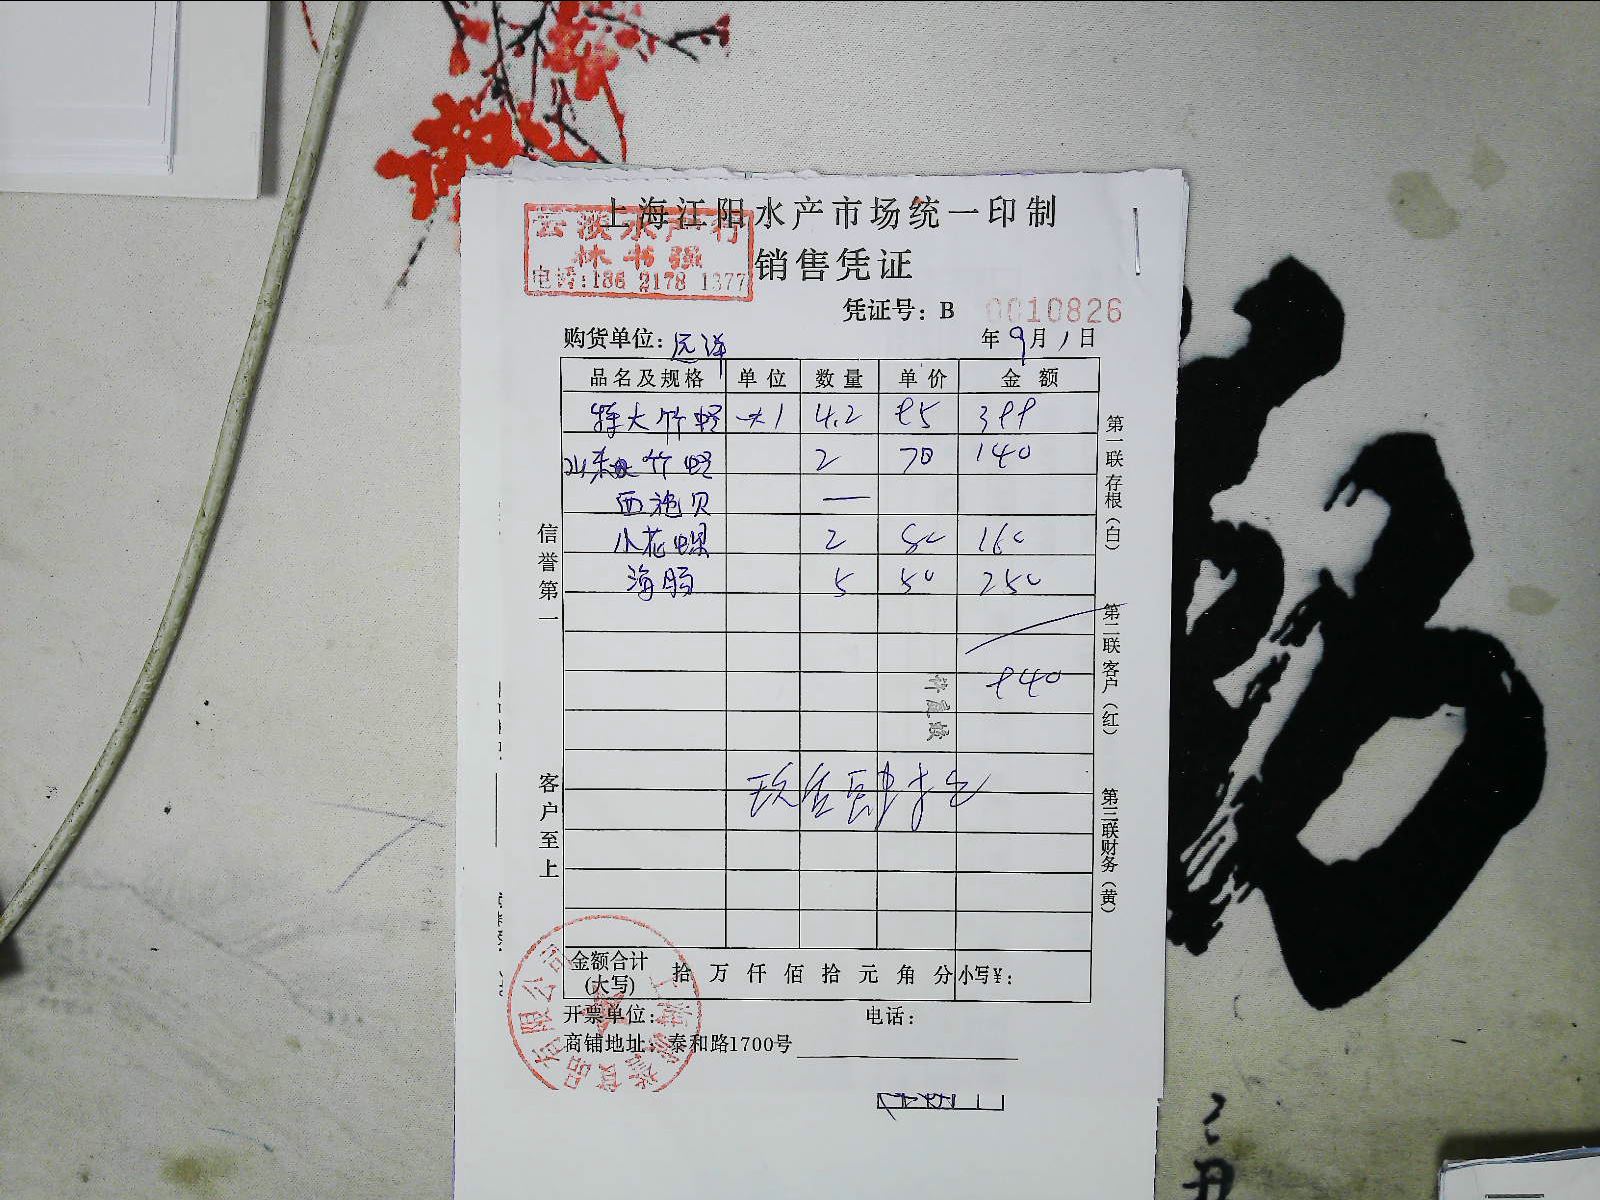 上海江阳水产市场统一印制
云淡水产行
林书强
电话:186 2178 1377
销售凭证
凭证号：B 0010826
购货单位：远洋 年9月1日
品名及规格 单位 数量 单价 金额
特大竹蛏 4.2 95 399
竹蛏 2 70 140
西施贝 —
小花螺 2 80 160
海肠 5 50 250
940
玖佰肆拾元
信誉第一
客户至上
第一联存根（白）
第二联客户（红）
第三联财务（黄）
金额合计(大写) 拾万仟佰拾元角分 小写¥：
开票单位： 电话：
商铺地址：泰和路1700号